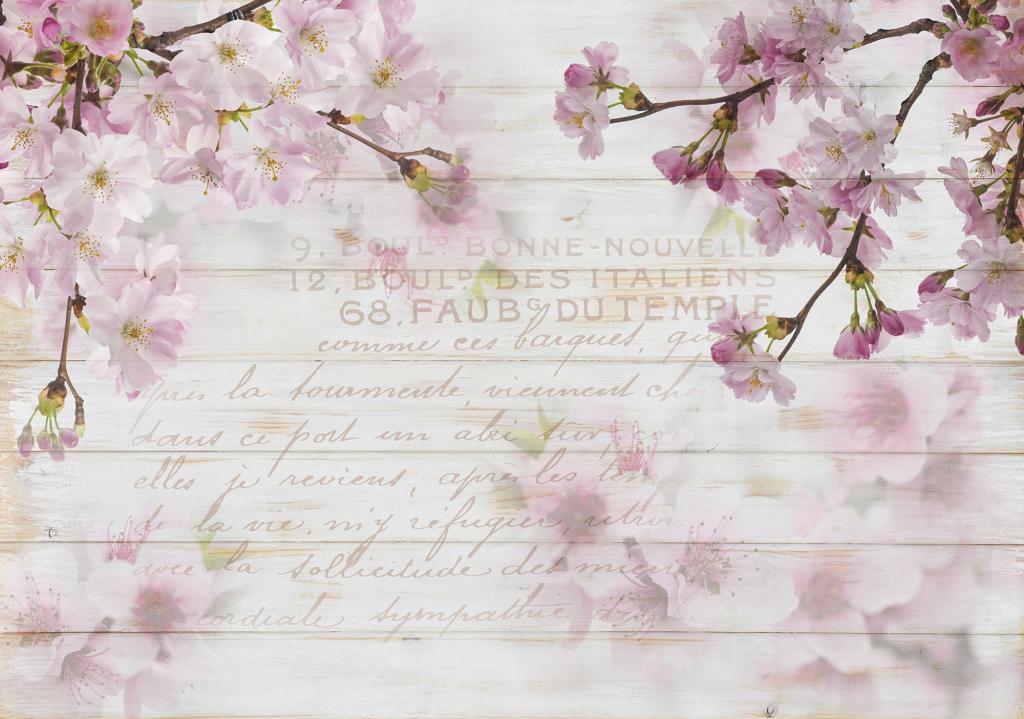 9, BOULD. BONNE-NOUVELL
12, BOULD. DES ITALIENS
68, FAUBG. DU TEMPLE
comme ces barques, qu
après la tourmente, viennent che
dans ce port un abri sûr
elles je reviens, après les tem
de la vie, m'y réfugier, retrou
avec la sollicitude des mien
cordiale sympathie